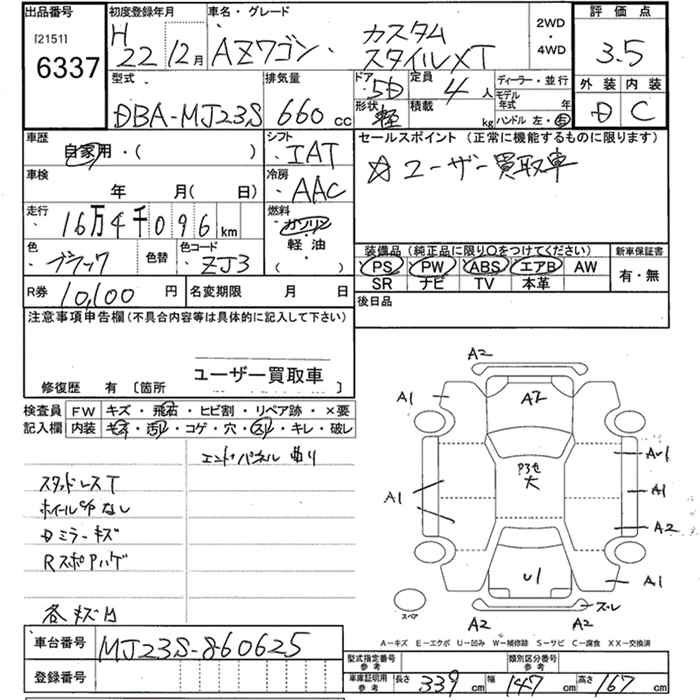 出品番号 初度登録年月 車名・グレード 2WD・4WD 評価点
[2151] 6337 H 22年 12月 AZワゴン カスタムスタイルXT 3.5
型式 排気量 ドア 5D 定員 4 人 ディーラー・並行 外装 内装
DBA-MJ23S 660 cc 形状 軽 積載 kg モデル年式 年 D C
ハンドル 左・右
車歴 自家用・( ) シフト IAT セールスポイント (正常に機能するものに限ります)
車検 年 月( 日) 冷房 AAC ☆ユーザー買取車
走行 16万4千096 km 燃料 ガソリン
軽油
( )
色 ブラック 色替 色コード ZJ3 装備品 (純正品に限り○をつけてください) 新車保証書
PS PW ABS エアB AW 有・無
SR ナビ TV 本革
R券 10,100 円 名変期限 月 日 後日品
注意事項申告欄(不具合内容等は具体的に記入して下さい)
ユーザー買取車
修復歴 有 〔箇所
検査員 FW キズ・飛石・ヒビ割・リペア跡・×要
記入欄 内装 キズ・汚れ・コゲ・穴・スレ・キレ・破レ
エンドパネル曲り
スタッドレスT
ホイールC/Pなし
Dミラーキズ
RスポPハゲ
各キズH
A2
A1 A2 A1
A1 A1 A1
A2
U1 A1
スペア スレ
A2 A2
A-キズ E-エクボ U-凹み W-補修跡 S-サビ C-腐食 XX-交換済
車台番号 MJ23S-860625
登録番号
型式指定番号 参考 類別区分番号 参考
車庫証明用 参考 長さ 339 cm 幅 147 cm 高さ 167 cm